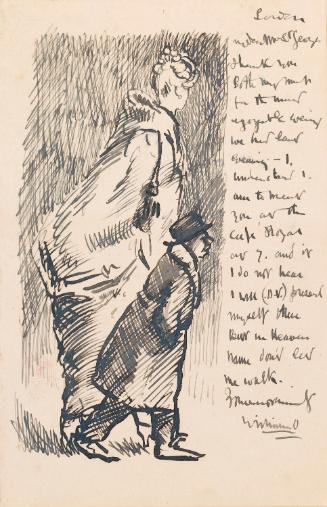 London
my dear Mrs George
thank you
both very much
for the most
enjoyable evening
we had last
evening – I,
understand I
am to meet
you at the
Café Royal
at 7. and if
I do not hear
I will (D.V.) present
myself then
But in Heavens
name dont let
me walk..